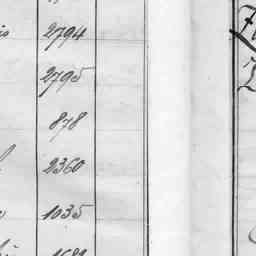 2794
2795
878
2360
1035